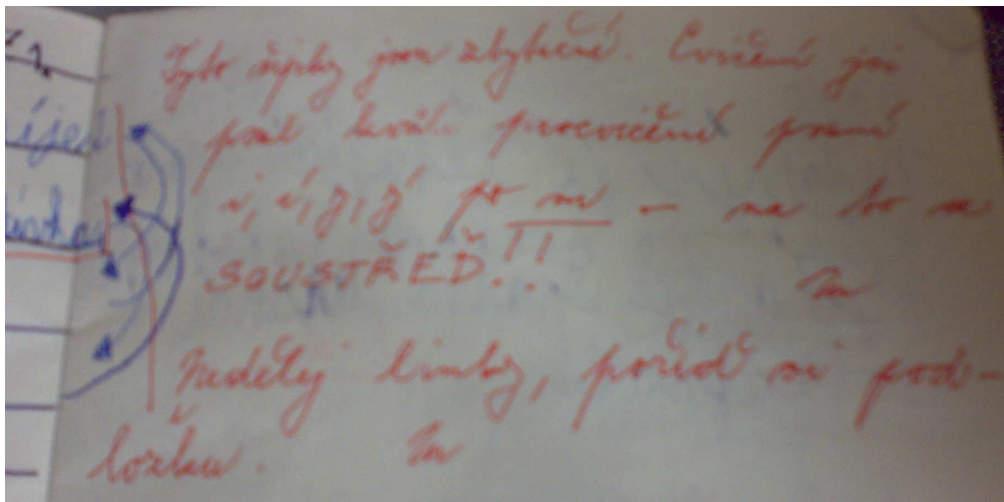 Tyto šipky jsou zbytečné. Cvičení jsi
psal kvůli procvičení psaní
i, í, y, ý po m – na to se
SOUSTŘEĎ!!
Nedělej linky, pořiď si pod-
ložku.